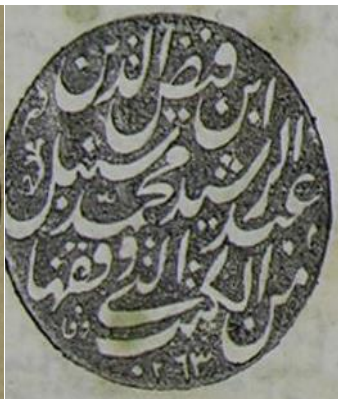 ابن فيض الدين
عبد الرشيد محمد سنبل
من الكتب الذي وقفها